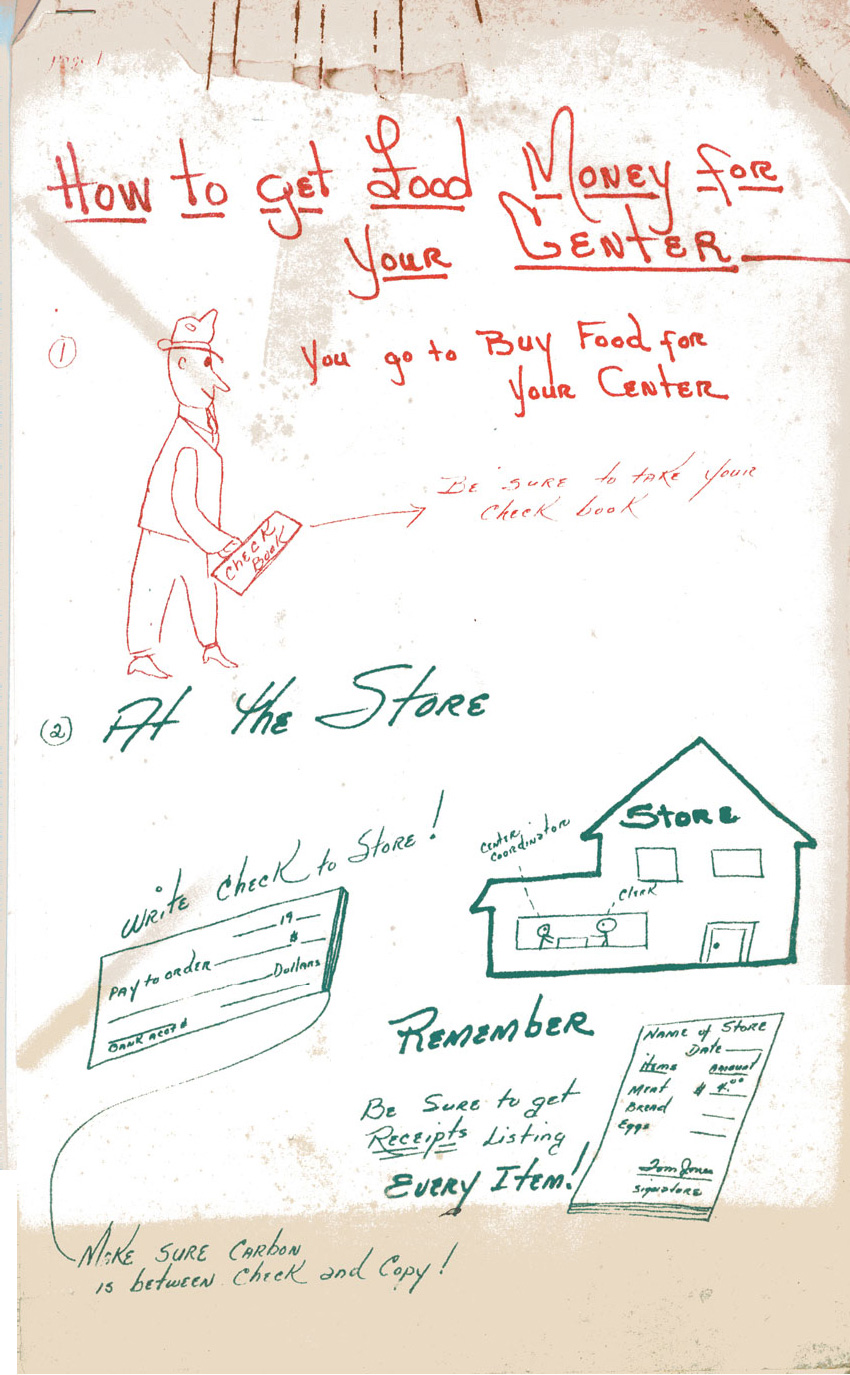 page 1
How to get Food Money for
Your Center
1
You go to Buy Food for
your Center
Be sure to take your
check book
Check
Book
2
At the Store
Write Check to Store!
19
$
Pay to order
Dollars
Bank acct #
Store
Center
Coordinator
Clerk
Remember
Be Sure to get
Receipts Listing
Every Item!
Name of Store
Date
Items Amount
Meat $ 4.00
Bread
Eggs
Tom Jones
signature
Make sure Carbon
is between Check and Copy!